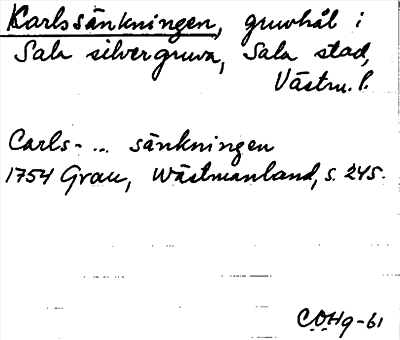 Karlssänkningen, gruvhål i
Sala silvergruva, Sala stad,
Västm. l.
Carls- ... sänkningen
1754 Grau, Wästmanland, s. 245.
C.O.Hg-61